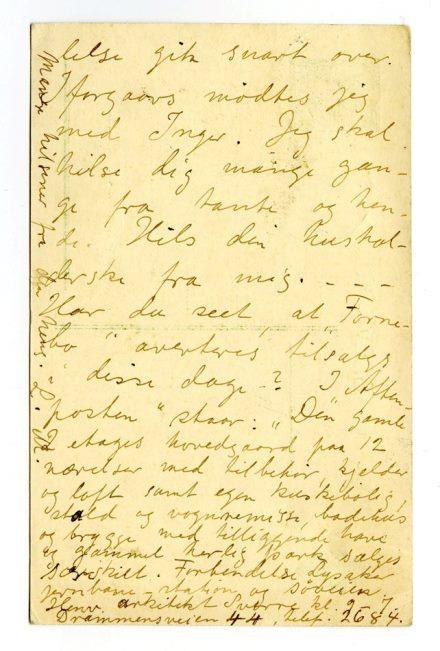 lelse gik snart over.
Iforgaars mødtes jeg
med Inger. Jeg skal
hilse dig mange gan-
ge fra tante og hen-
de. Hils din hushol-
derske fra mig. - - -
Har du seet, at "Forne-
bo" averteres tilsalgs
disse dage-? I "Aften-
posten" staar: "Den gamle
2 etages hovedgaard paa 12
værelser med tilbehør, kjelder
og loft samt egen kuskebolig,
stald og vognremisse, badehus
og brygge med tilliggende have
og gammel herlig park sælges
særskilt. Forbindelse Lysaker
jernbane-station og søveien.
Henv. arkitekt Sverre kl. 2-
Drammensveien 44, telef. 2684.
Mange hilsener fra din heng. L. M.